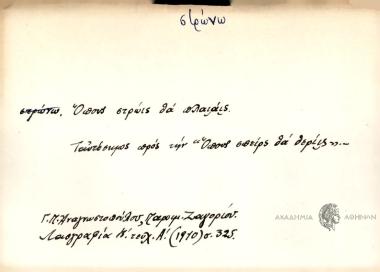 στρώνω
στρώνω. Ὅπους στρώις θά πλαιάις.
Ταὐτόσημος πρός τήν "Ὅπους σπείρς θά θερίις"..-
Γ. Π. Ἀναγνωστοπούλου, Παροιμ. Ζαγορίου.
Λαογραφία Β' τεύχ. Α' (1910) σ. 325.
ΑΚΑΔΗΜΙΑ ΑΘΗΝΩΝ